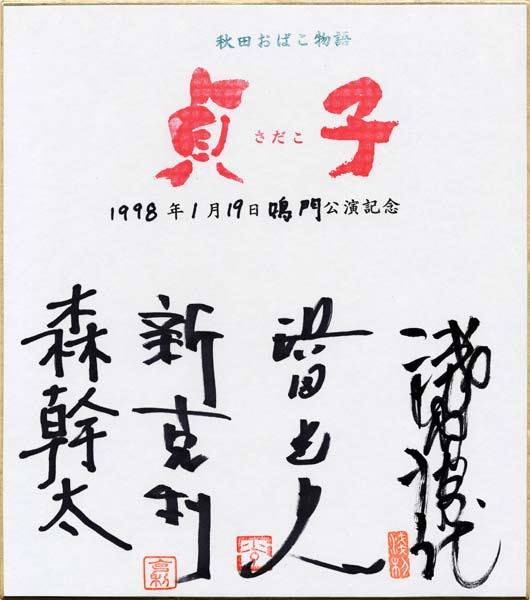 秋田おばこ物語
貞子
さだこ
1998年1月19日鳴門公演記念
浅利香津代
新克利
克利
森幹太